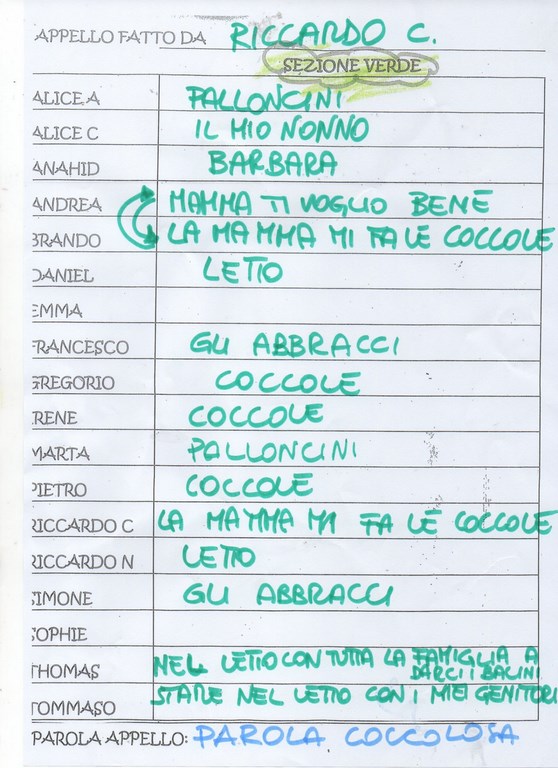 APPELLO FATTO DA RICCARDO C.
SEZIONE VERDE
ALICE A PALLONCINI
ALICE C IL MIO NONNO
ANAHID BARBARA
ANDREA MAMMA TI VOGLIO BENE
BRANDO LA MAMMA MI FA LE COCCOLE
DANIEL LETTO
EMMA
FRANCESCO GLI ABBRACCI
GREGORIO COCCOLE
IRENE COCCOLE
MARTA PALLONCINI
PIETRO COCCOLE
RICCARDO C LA MAMMA MI FA LE COCCOLE
RICCARDO N LETTO
SIMONE GLI ABBRACCI
SOPHIE
THOMAS NEL LETTO CON TUTTA LA FAMIGLIA A
DARCI I BACINI
TOMMASO STARE NEL LETTO CON I MIEI GENITORI
PAROLA APPELLO: PAROLA COCCOLOSA